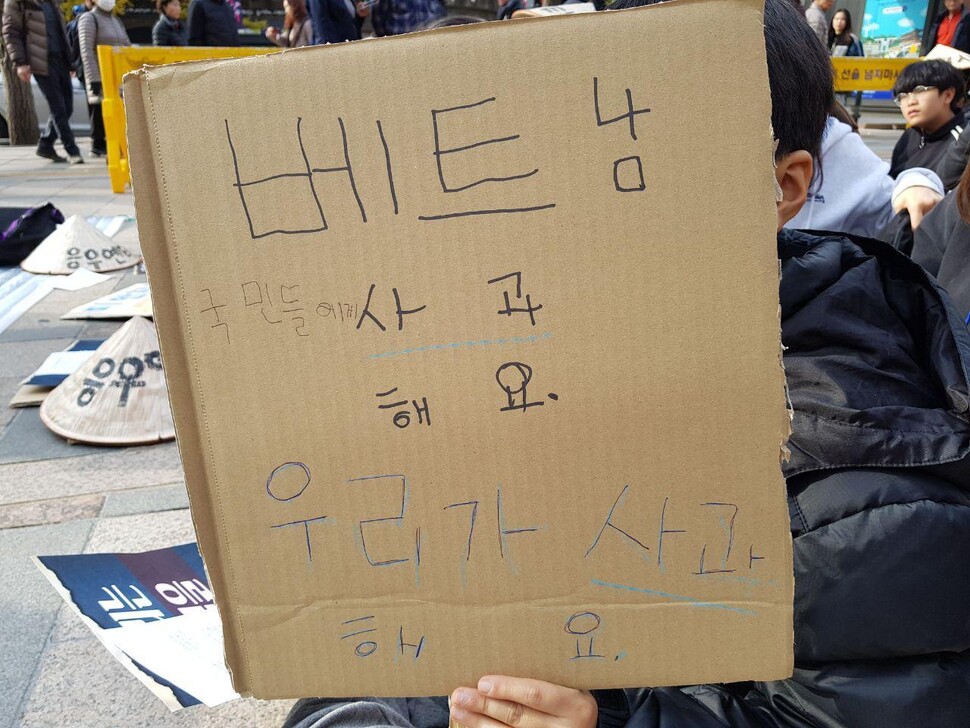 선을 넘지마시
베트남
국민들에게 사과
해요.
우리가 사과
해요.
응우옌
응우옌